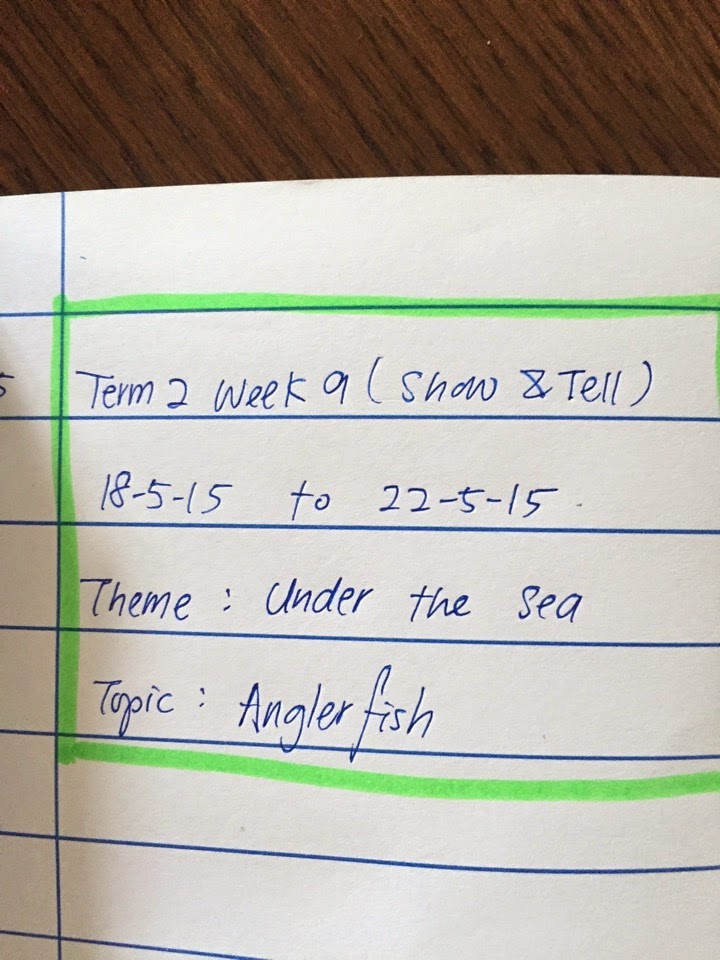 5
Term 2 Week 9 (Show & Tell)
18-5-15 to 22-5-15
Theme : Under the sea
Topic : Angler fish